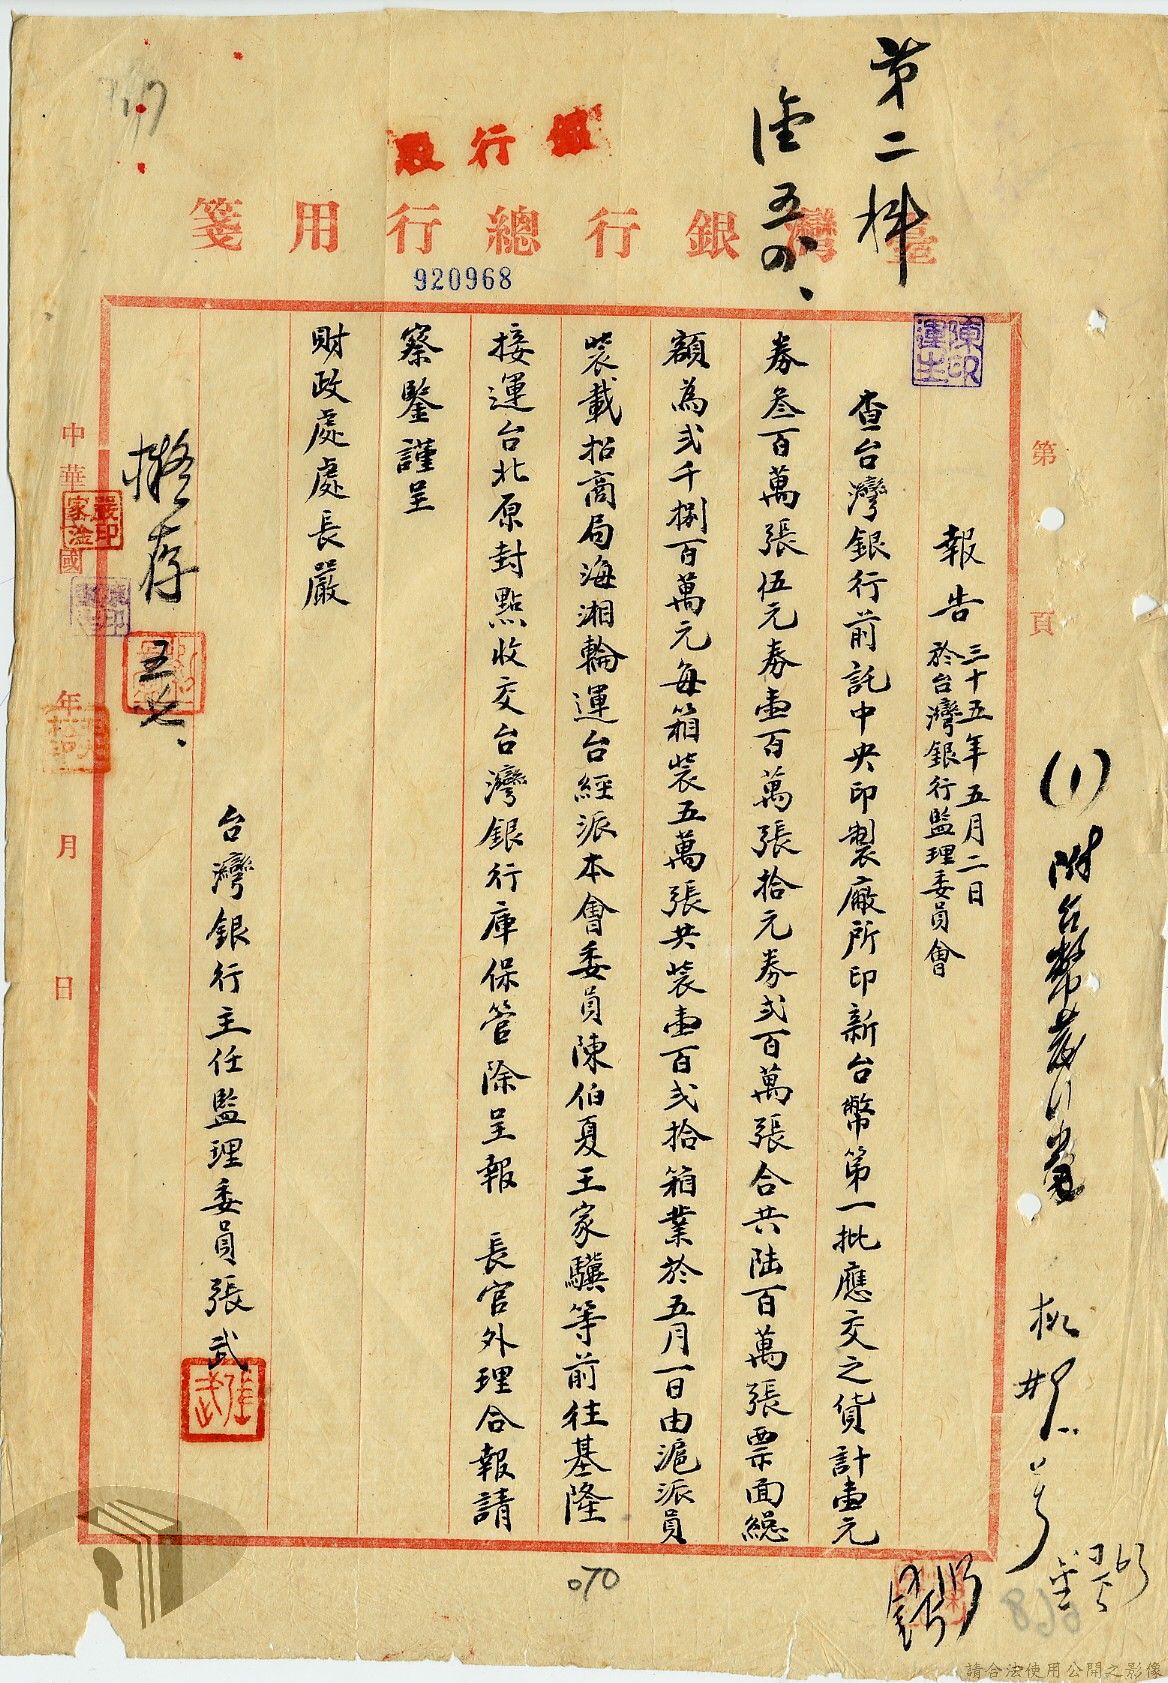 第二件
銀行股
臺灣銀行總行用箋
920968
第　頁
報告
三十五年五月二日
於台灣銀行監理委員會
查台灣銀行前託中央印製廠所印新台幣第一批應交之貨計壹元
券叁百萬張伍元券壹百萬張拾元券弍百萬張合共陸百萬張票面總
額為弍千捌百萬元每箱裝五萬張共裝壹百弍拾箱業於五月一日由滬派員
裝載招商局海湘輪運台經派本會委員陳伯夏王家驥等前往基隆
接運台北原封點收交台灣銀行庫保管除呈報　長官外理合報請
察鑒謹呈
財政處處長嚴
台灣銀行主任監理委員張武
張武
擬存
五、七、
嚴家淦印
中華民國　年　月　日
070
請合法使用公開之影像